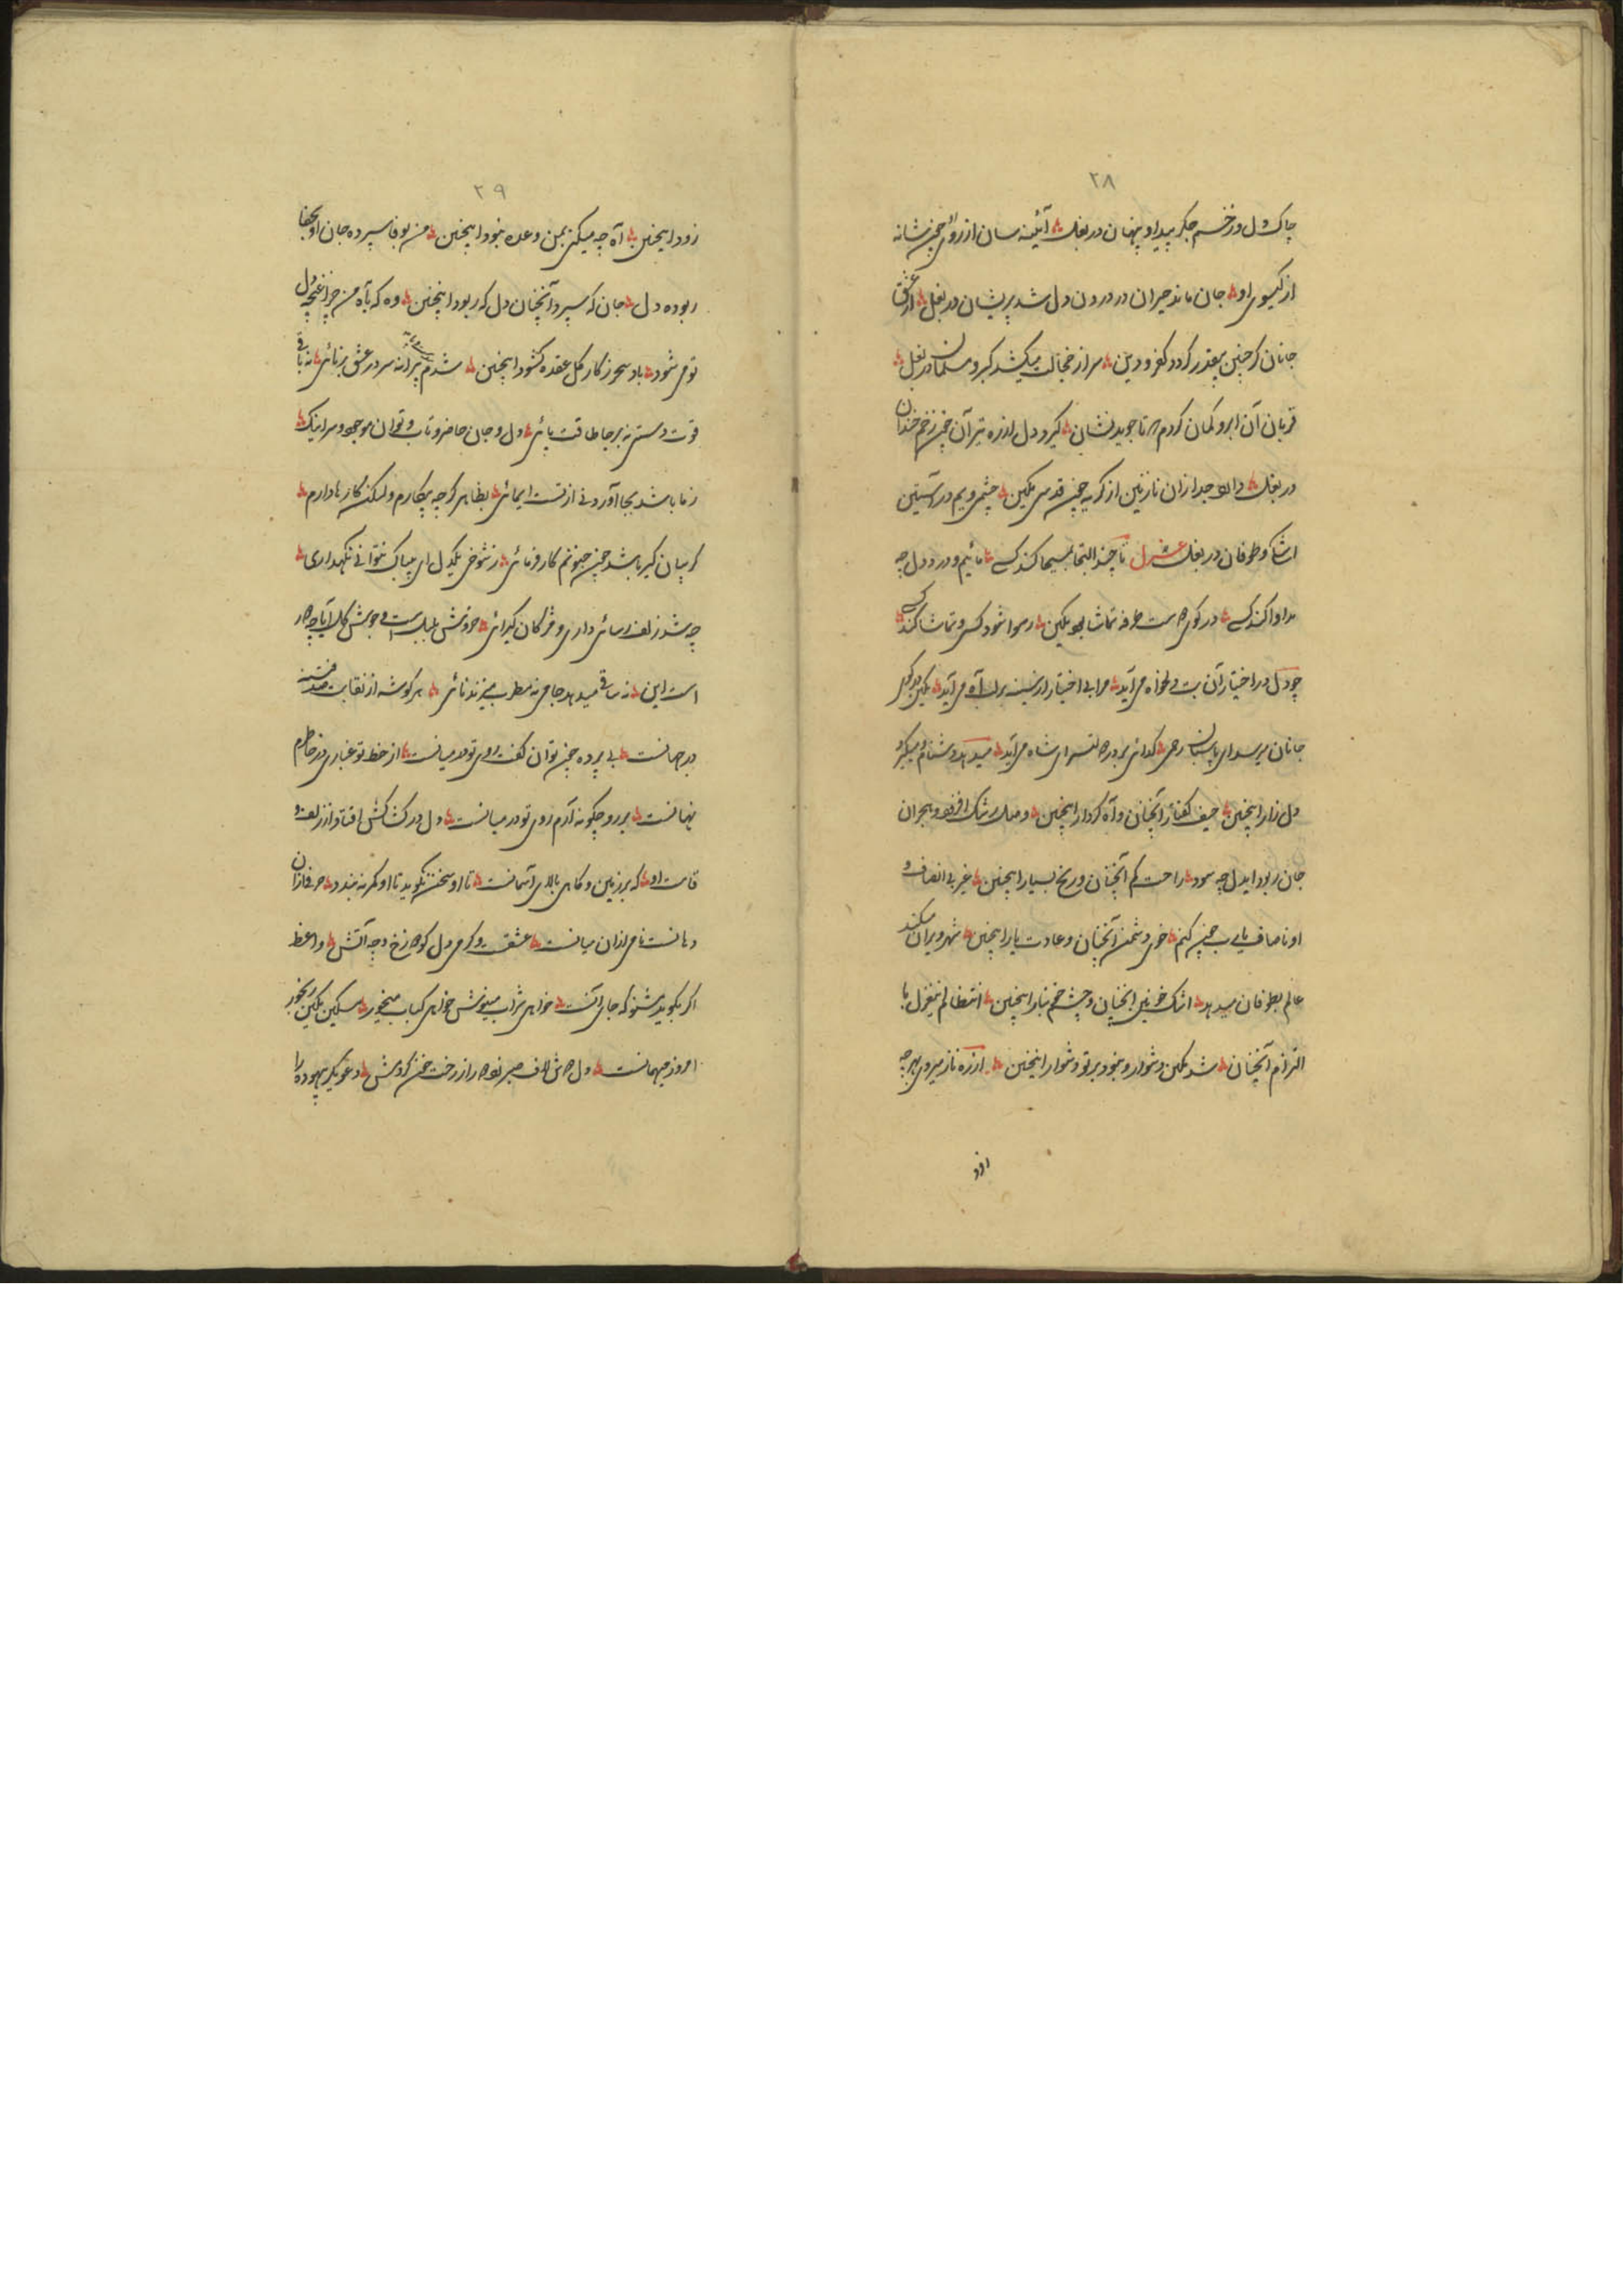 ۲۸
چاک دل و زخم جگر پیدا و پنهان در بغل آئینه سان از روئ چون شانه
از گیسوی او جان ماند حیران در درون دل شد پریشان در بغل از عشق
جانان گر چنین بیقدر گردد کفر و دین سر از خجالت میکشد گبر و مسلمان در بغل
قربان آن ابرو کمان گردم که تا جوید نشان گیرد دل از زه تیر آن چون زخم خندان
در بغل دارد جدا زان نازنین از گریه چون قدسی مکین چشمی و یم در آستین
اشک و طوفان در بغل غزل تا چند التجا بمسیحا کند کسے مائیم و درد دل چه
مداوا کند کسے در کوی دوست طرفه تماشا بود مکین رسوا شود کسی و تماشا کند کسے
چو دل در اختیار آن بت دلخواه می آید مرا بی اختیار از سینه بر لب آه می آید مکین در کوی
جانان میرسد ای پاسبان رحمی گدائی بر در دولتسرای شاه می آید میدهد دشنام و میگیرد
دل زار اینچنین حیف گفتار آنچنان و آه کردار اینچنین وصلت رشک افزود و هجران
جان ربود ایدل چه سود راحت کم آنچنان و رنج بسیار اینچنین غیر بی انصاف و
او ناصاف یارب چون کنم خوی دشمن آنچنان و عادت یار اینچنین شهر ویران میکند
عالم بطوفان میدهد اشک خونین آنچنان و چشم خونبار اینچنین انتظالم نیغزل با
التزام آنچنان شد مکین دشوار و نبود بر تو دشوار اینچنین از ره ناز میروی بهر چه
زود
۲۹
زود اینچنین آه چه میکنی بمن وعده نبود اینچنین من بوفا سپرده جان او بجفا
ربوده دل جان که سپرد آنچنان دل که ربود اینچنین وه که بآه من چرا غنچه دل
تو می شود باد سحر ز کار گل عقده کشود اینچنین شدم پیرانه سر در عشق برنائی نه باقی
قوت دستی نه بر جا طاقت پائی دل و جان حاضر و تاب و توان موجود و سر اینک
ز ما باشد بجا آوردنی از تست ایمائی بظاهر گرچه بیکارم ولیکن کارها دارم
گریبان گیر باشد چون جنونم کار فرمائی ز شوخی یکدل ای بیباک نتوانی نگهداری
چه شد زلف رسائی داری و مژگان گیرائی خروش بلبل است و جوش گل آیا چه دور
است این نه ساقی میدهد جامی نه مطرب میزند نائی هر گوشه از نقابت صد فتنه
در جهانست بی پرده چون توان گفت روی تو در میانست از خط تو غباری در خاطرم
نهانست بر رو چگونه آرم روی تو در میانست دل در کشاکش افتاد از زلف و
قامت او که بر زمین و گاهی بالای آسمانست تا او سخن نگوید تا او کمر نه بندد حرفی ازان
دهانست نامی ازان میانست عشقست و گرمی دل کو دوزخ و چه آتش واعظ
اگر بگوید مشنو که جای آنست خواهی شراب مینوش خواهی کباب میخور مسکین مکین رنجور
امروز میهمانست دل که ش لاف صبر بود راز رخت چون کردمش دعوی بیهوده را